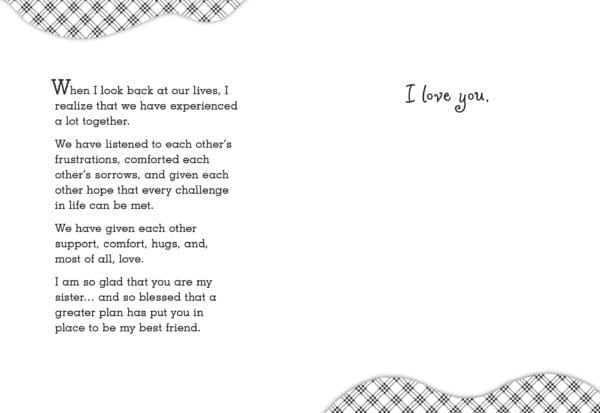 When I look back at our lives, I
realize that we have experienced
a lot together.
We have listened to each other's
frustrations, comforted each
other's sorrows, and given each
other hope that every challenge
in life can be met.
We have given each other
support, comfort, hugs, and,
most of all, love.
I am so glad that you are my
sister... and so blessed that a
greater plan has put you in
place to be my best friend.
I love you.